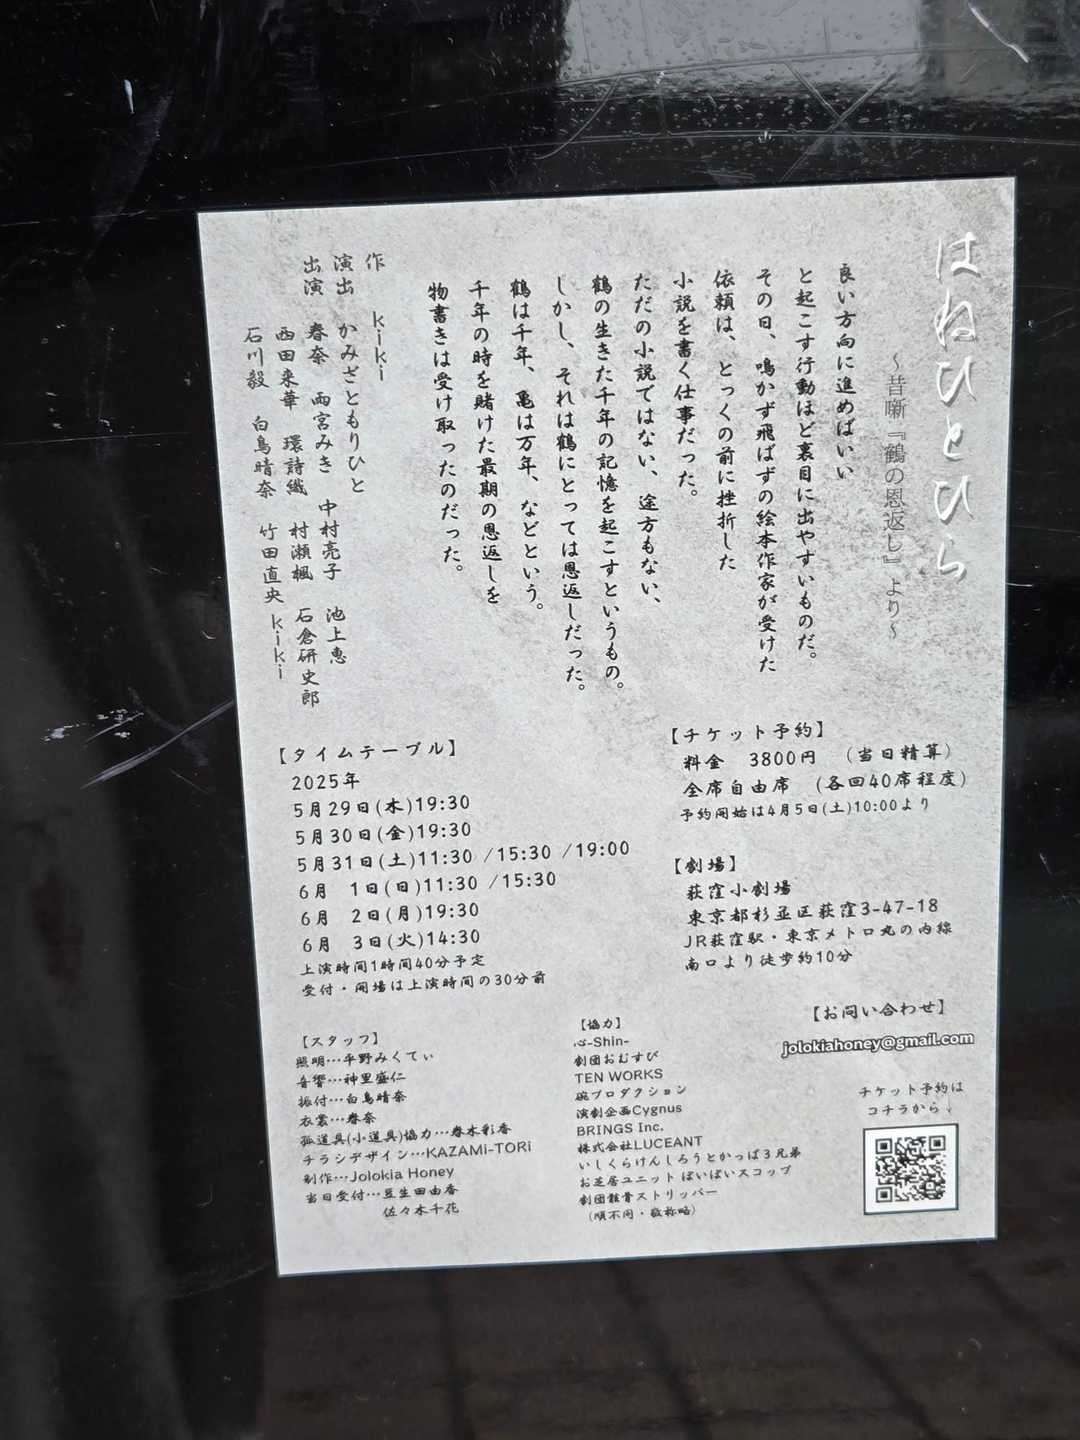 はねひとひら
～昔噺『鶴の恩返し』より～
良い方向に進めばいい
と起こす行動ほど裏目に出やすいものだ。
その日、鳴かず飛ばずの絵本作家が受けた
依頼は、とっくの前に挫折した
小説を書く仕事だった。
ただの小説ではない、途方もない、
鶴の生きた千年の記憶を起こすというもの。
しかし、それは鶴にとっては恩返しだった。
鶴は千年、亀は万年、などという。
千年の時を賭けた最期の恩返しを
物書きは受け取ったのだった。
作 kiki
演出 かみざともりひと
出演 春奈 雨宮みき 中村亮子 池上恵
西田来華 環詩織 村瀬楓 石倉研史郎
石川毅 白鳥晴奈 竹田直央 kiki
【タイムテーブル】
2025年
5月29日(木)19:30
5月30日(金)19:30
5月31日(土)11:30 /15:30 /19:00
6月 1日(日)11:30 /15:30
6月 2日(月)19:30
6月 3日(火)14:30
上演時間1時間40分予定
受付・開場は上演時間の30分前
【チケット予約】
料金 3800円 (当日精算)
全席自由席 (各回40席程度)
予約開始は4月5日(土)10:00より
【劇場】
荻窪小劇場
東京都杉並区荻窪3-47-18
JR荻窪駅・東京メトロ丸の内線
南口より徒歩約10分
【お問い合わせ】
jolokiahoney@gmail.com
チケット予約は
コチラから↓
【スタッフ】
照明…平野みくてぃ
音響…神里盛仁
振付…白鳥晴奈
衣裳…春奈
狐道具(小道具)協力…春木彩香
チラシデザイン…KAZAMI-TORI
制作…Jolokia Honey
当日受付…豆生田由香
佐々木千花
【協力】
心-Shin-
劇団おむすび
TEN WORKS
碗プロダクション
演劇企画Cygnus
BRINGS Inc.
株式会社LUCEANT
いしくらけんしろうとかっぱ3兄弟
お芝居ユニット ぽいぽいスコップ
劇団骸骨ストリッパー
(順不同・敬称略)